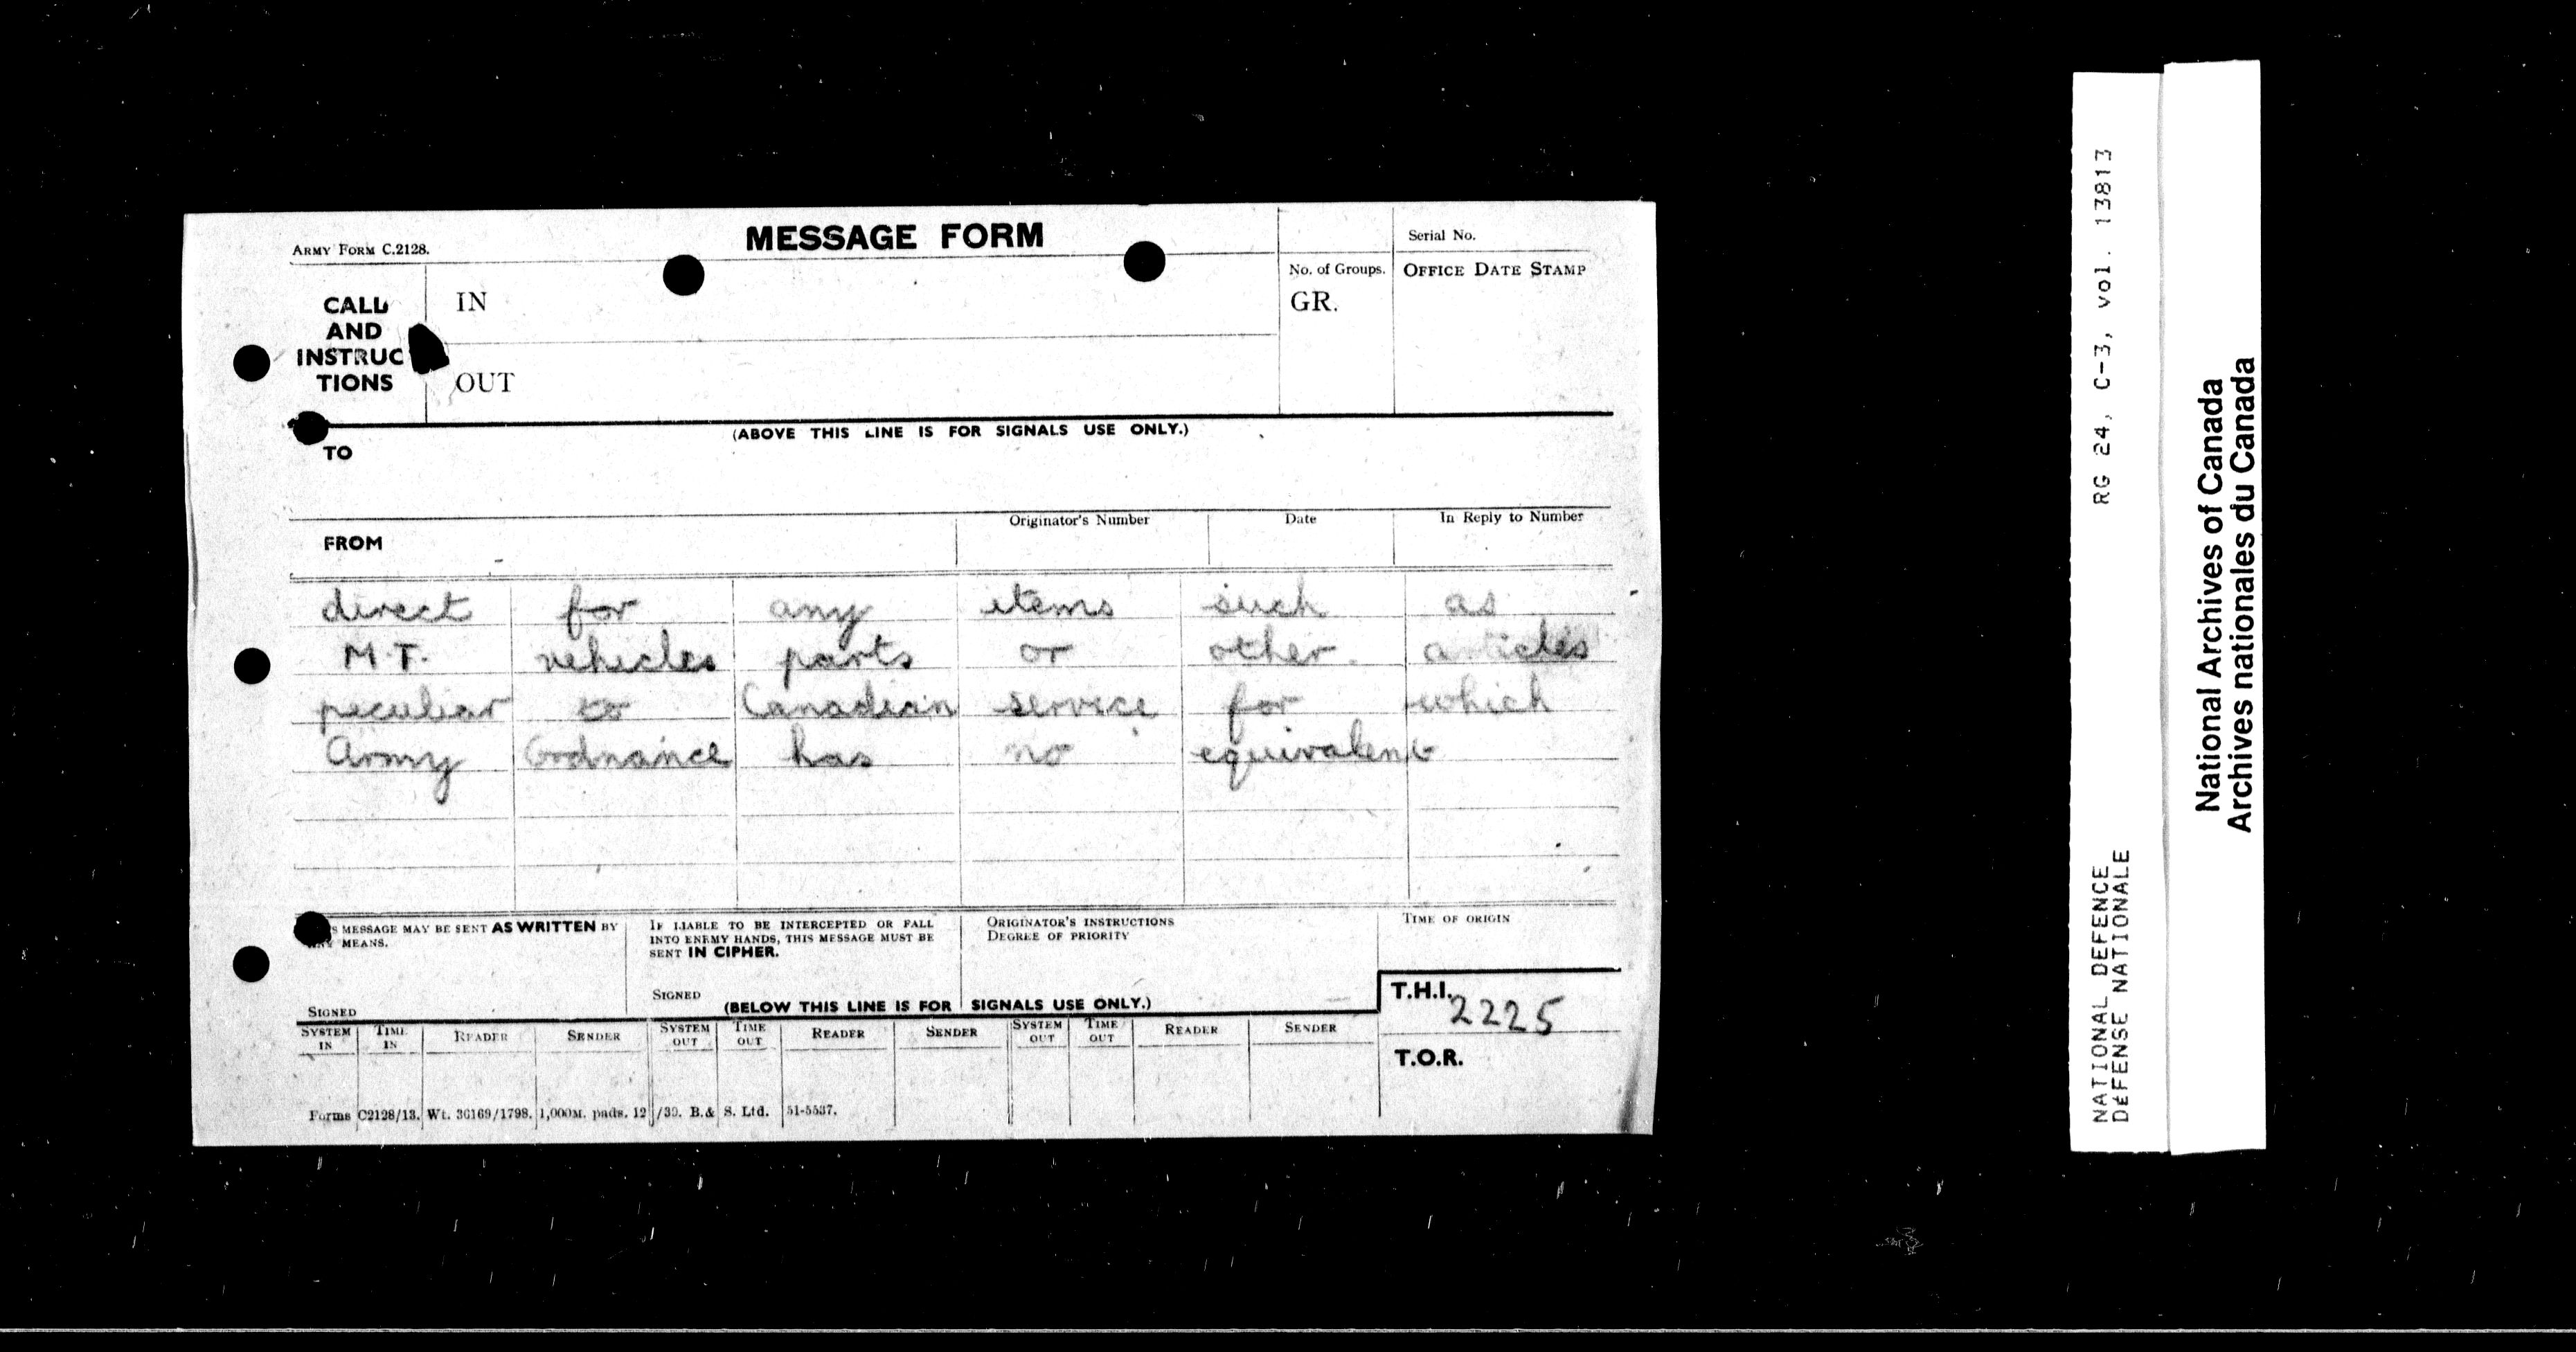 MESSAGE FORM
ARMY FORM C.2128.
Serial No.
CALL AND INSTRUCTIONS
IN
No. of Groups.
GR.
OFFICE DATE STAMP
OUT
(ABOVE THIS LINE IS FOR SIGNALS USE ONLY.)
TO
FROM
Originator's Number
Date
In Reply to Number
direct for any items such as
M.T. vehicles parts or other articles
peculiar to Canadian service for which
Army Ordnance has no equivalent
S MESSAGE MAY BE SENT AS WRITTEN BY
MEANS.
SIGNED
IF LIABLE TO BE INTERCEPTED OR FALL
INTO ENEMY HANDS, THIS MESSAGE MUST BE
SENT IN CIPHER.
SIGNED
ORIGINATOR'S INSTRUCTIONS
DEGREE OF PRIORITY
TIME OF ORIGIN
(BELOW THIS LINE IS FOR SIGNALS USE ONLY.)
T.H.I. 2225
SYSTEM IN TIME IN READER SENDER SYSTEM OUT TIME OUT READER SENDER SYSTEM OUT TIME OUT READER SENDER
T.O.R.
Forms C2128/13. Wt. 36169/1798. 1,000M. pads. 12/39. B.& S. Ltd. 51-5537.
NATIONAL DEFENCE RG 24, C-3, vol. 13813
DÉFENSE NATIONALE
National Archives of Canada
Archives nationales du Canada